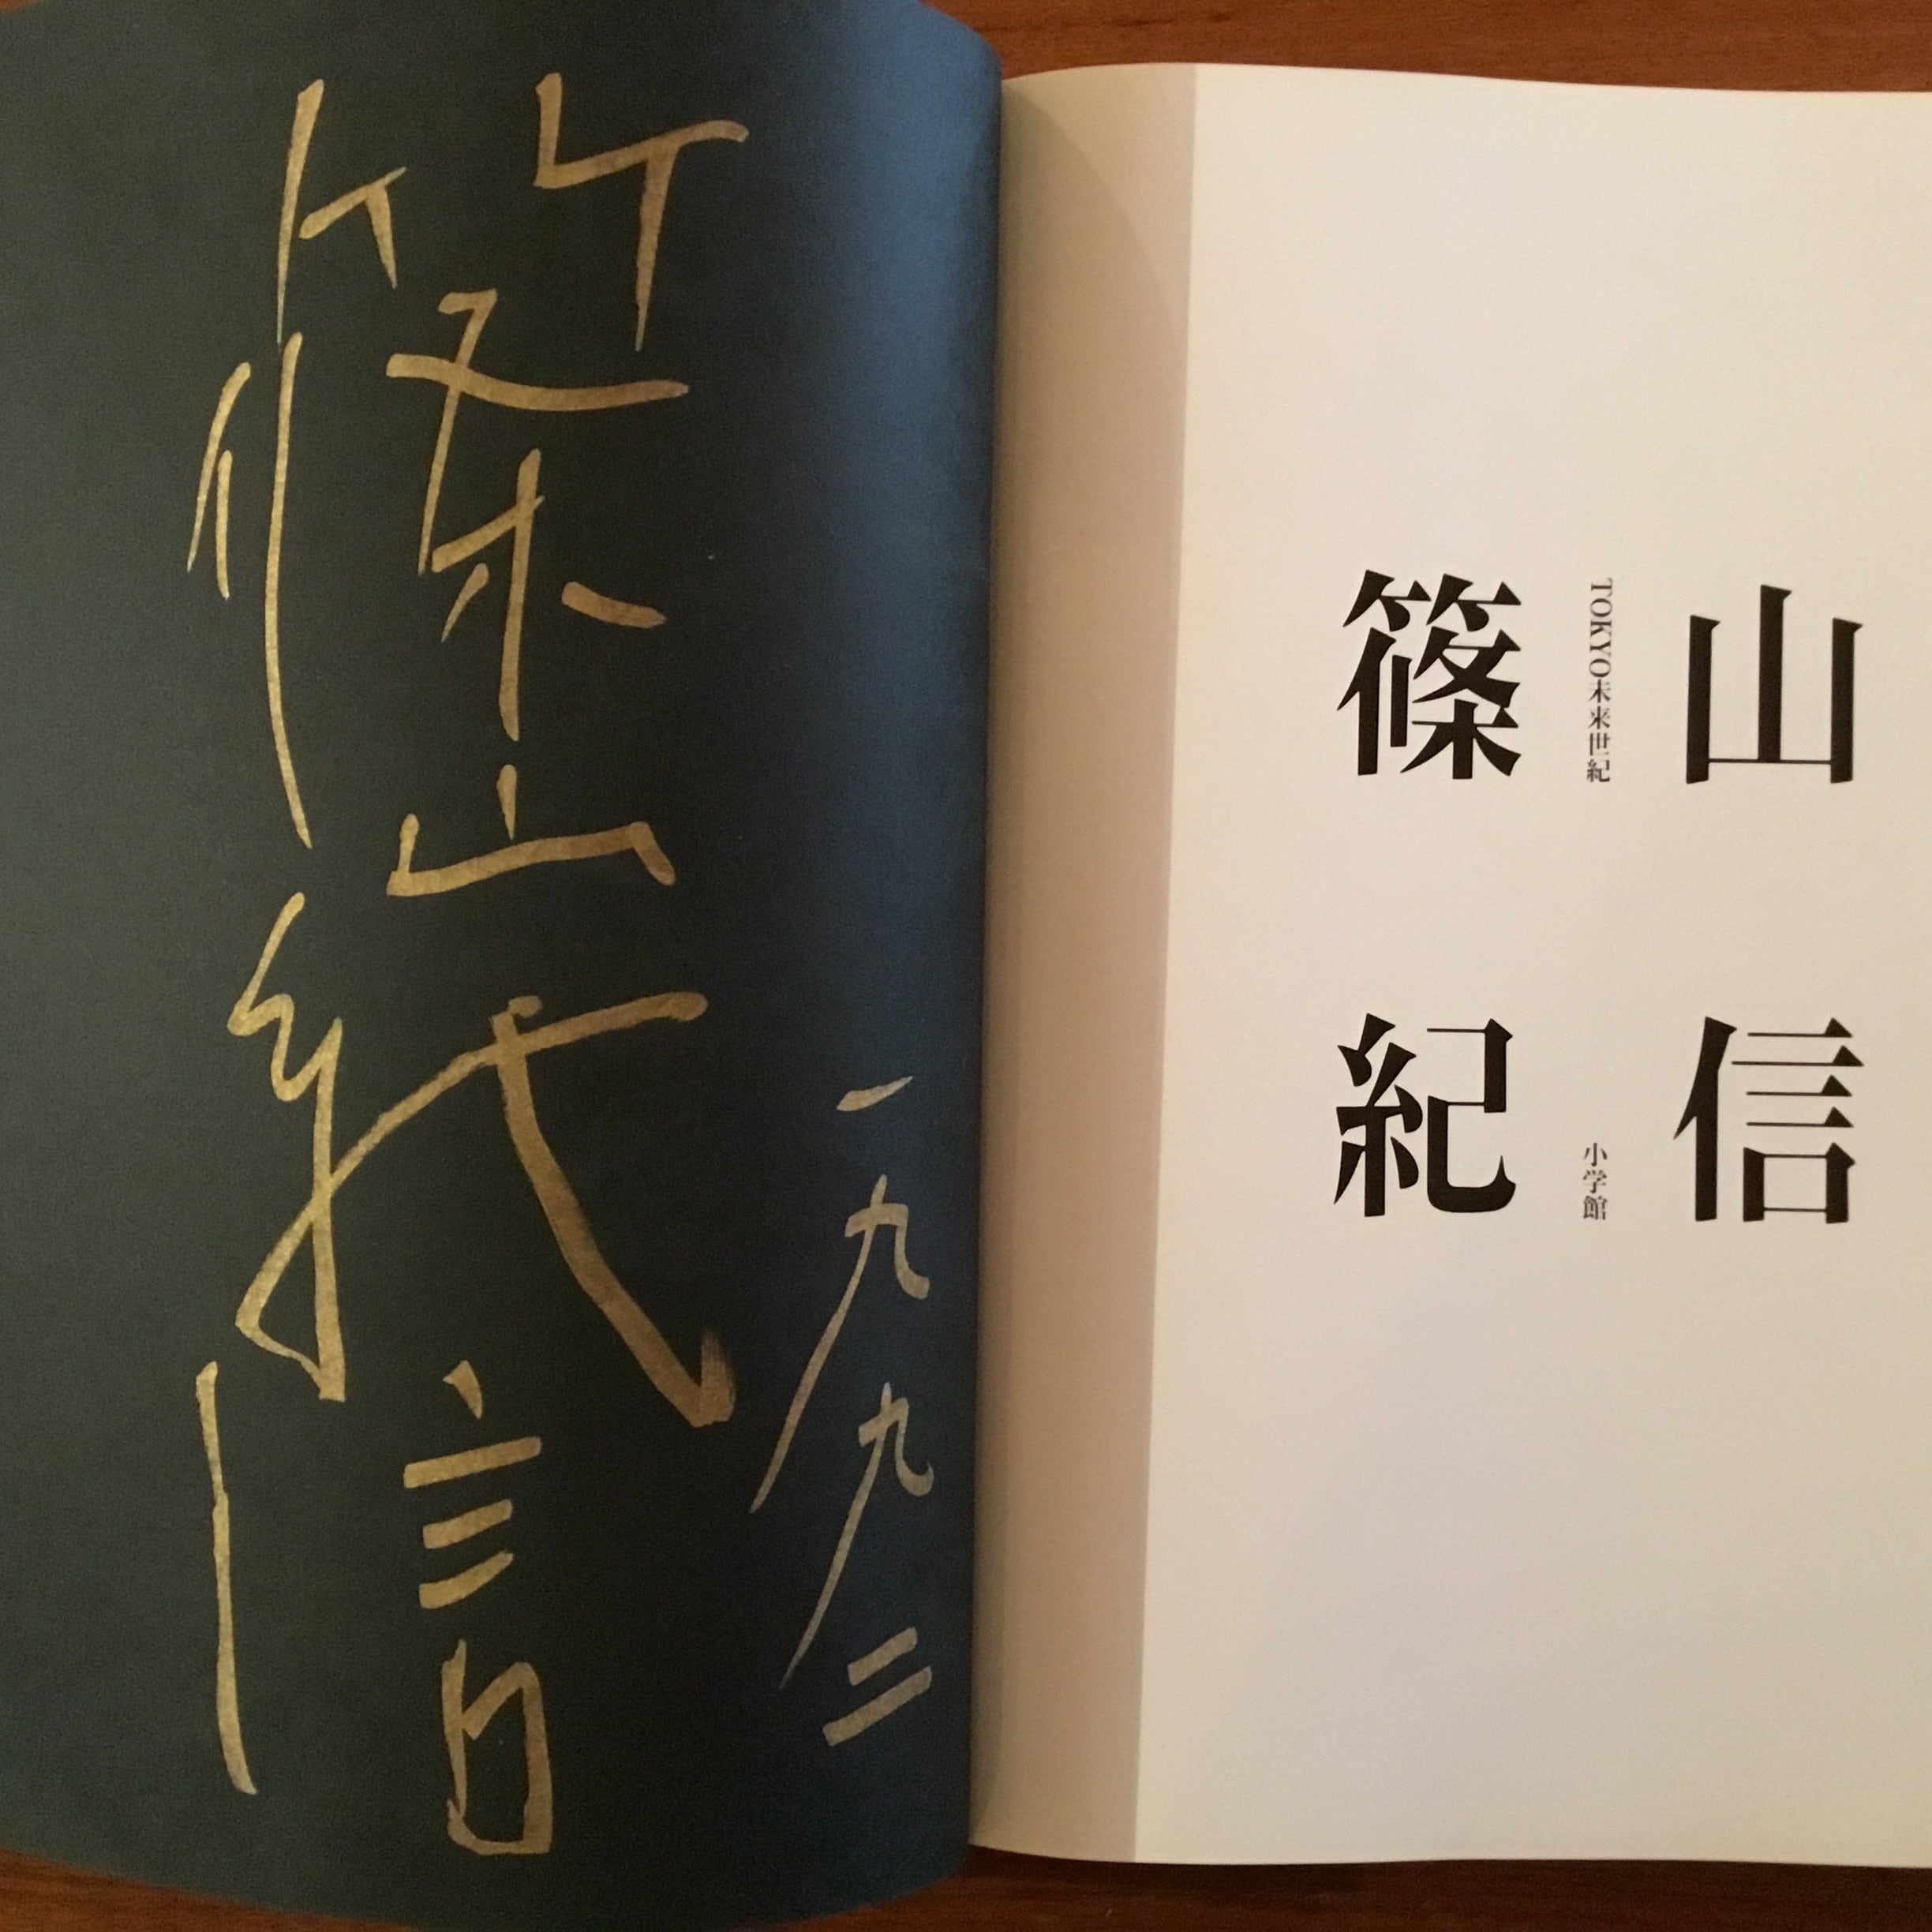 篠山紀信
一九九二
篠山
紀信
TOKYO未来世紀
小学館